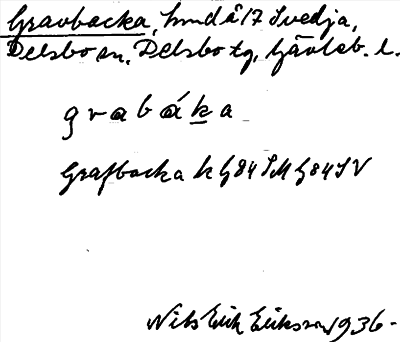 Gravbacka, hmd å 17 Svedja,
Delsbo sn, Delsbo tg, Gävleb. l.
grabáka
Grafbacka k G84 SM G84 SV
Nils Erik Eriksson 1936.